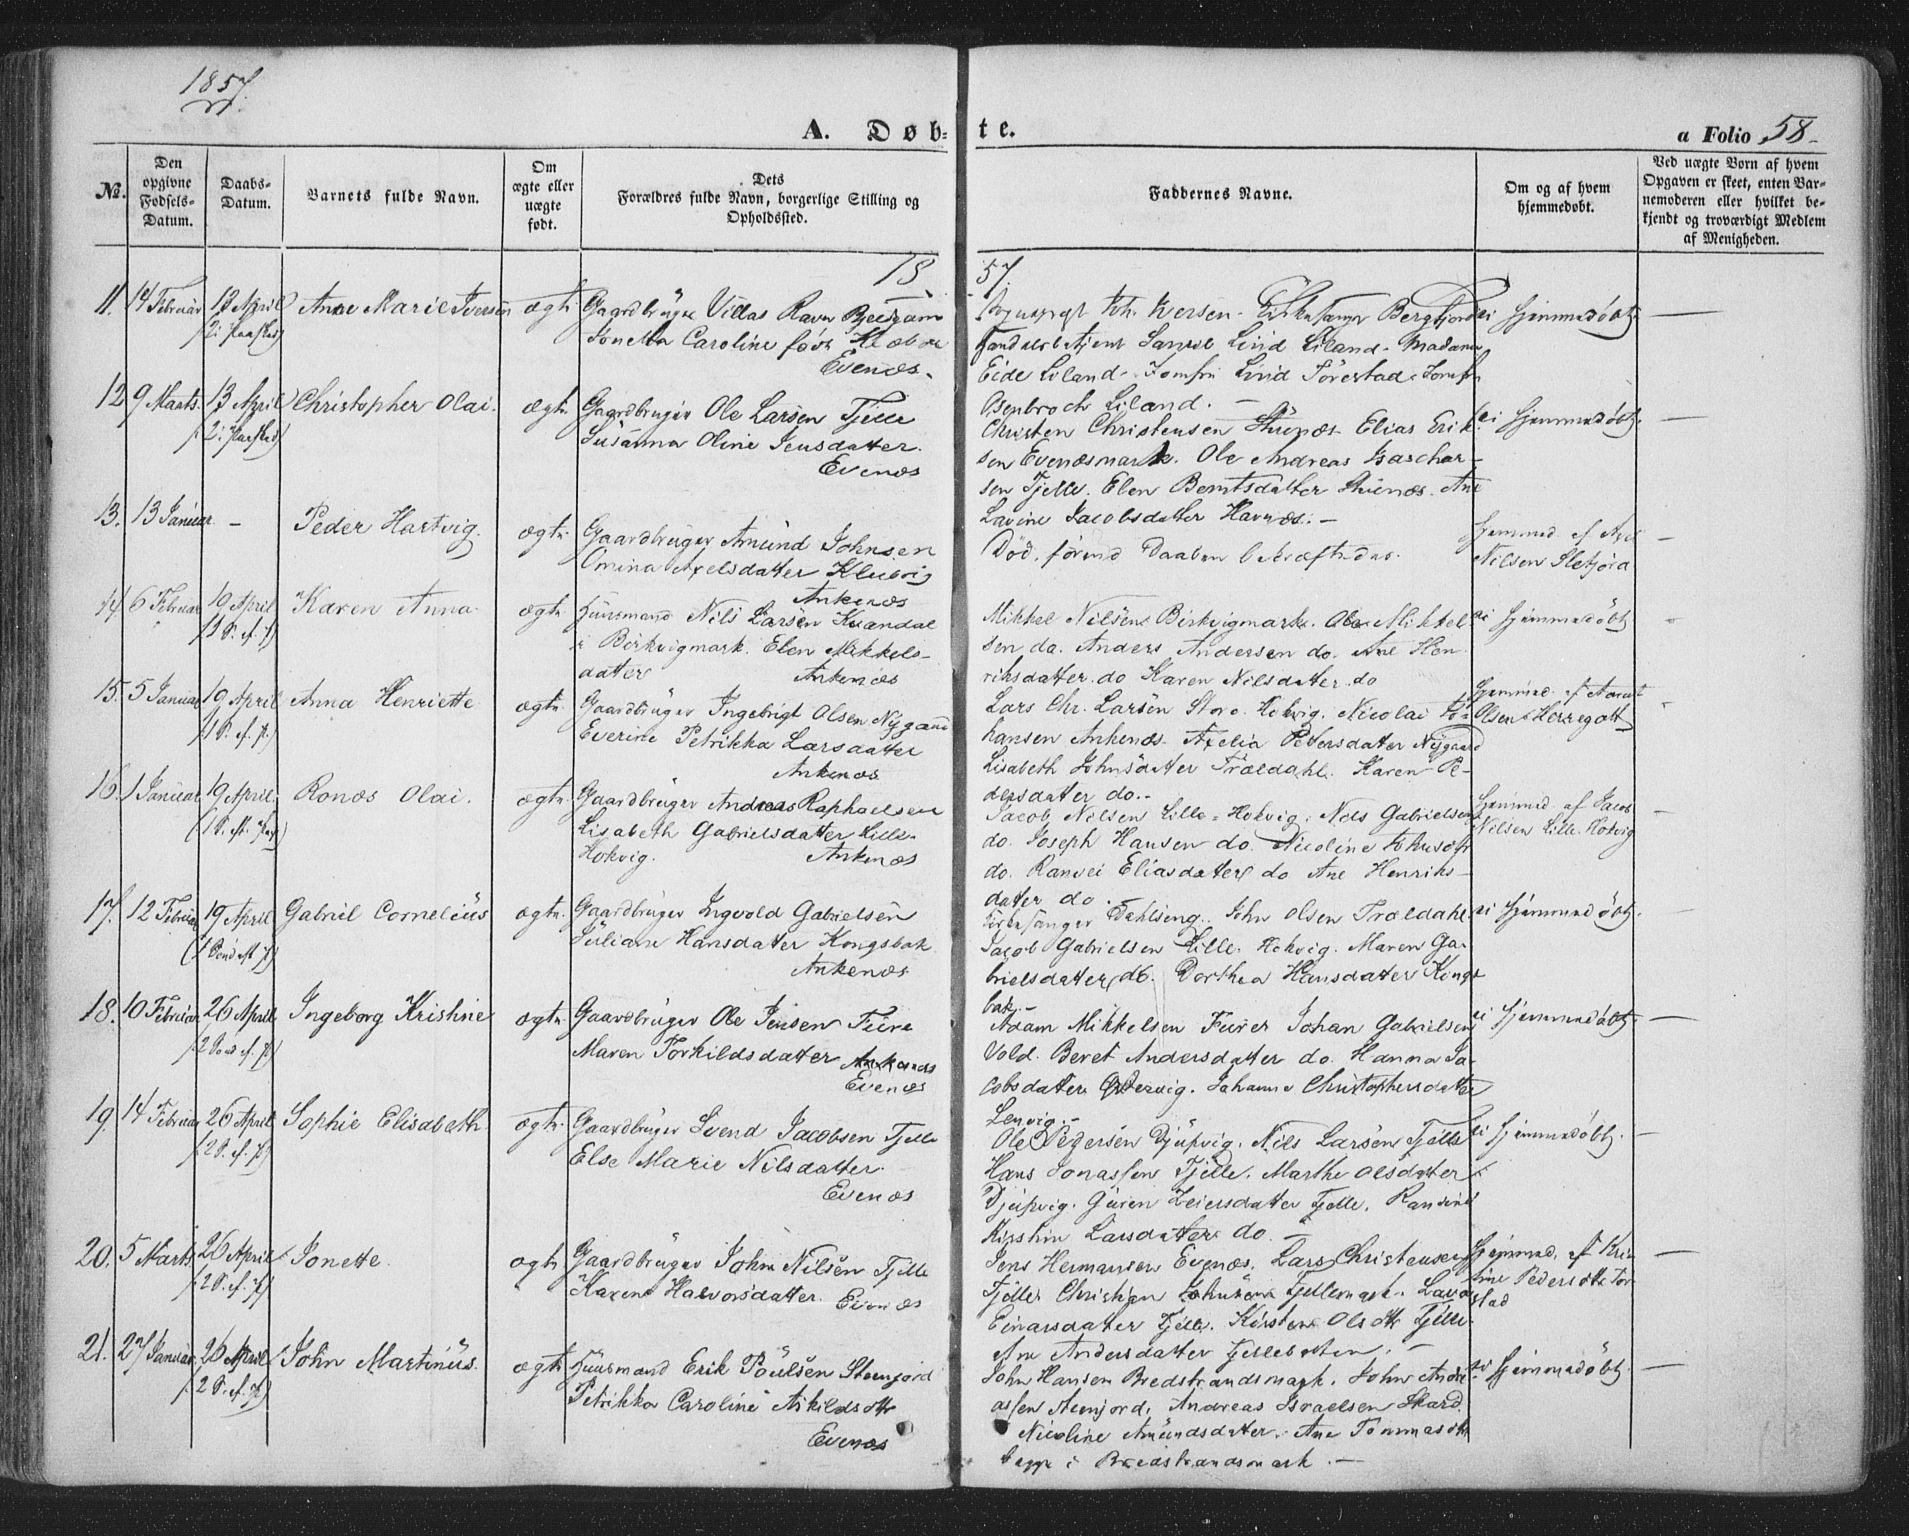 1857.
A. Døb-
te.
a Folio 58
No.
Den opgivne Fødsels-Datum.
Daabs-Datum.
Barnets fulde Navn.
Om ægte eller uægte født.
Dets Forældres fulde Navn, borgerlige Stilling og Opholdssted.
Faddernes Navne.
Om og af hvem hjemmedøbt.
Ved uægte Børn af hvem Opgaven er skeet, enten Barnemoderen eller hvilket bekjendt og troværdigt Medlem af Menigheden.
18
57.
11. 14 Februar 13 April Ane Marie Iversen ægte Gaardbruger Vidas Ravn
(2: Paasked) Caroline født Klæboe
Evenæs.
Iversen - Kirkesanger Bergfjord ei Hjemmedøbt.
Lind Liland - Madame
Eide Liland - Jomfru Lind - Jomfru
Osenbroch Liland. -
12 9 Marts. 13 April Christopher Olai. ægte Gaardbruger Ole Larsen Tjelle
(2: Paaskd) Susanna Oline Jensdatter.
Evenæs
Christen Christensen Elias Erik- ei Hjemmedøbt.
sen Evenæsmark. Ole Andreas Isachar-
sen Tjelle. Elen Berntsdatter Ane
Lavine Jacobsdatter Havnæs. -
13. 13 Januar - Peder Hartvig. ægte Gaardbruger Amund Johnsen
Omina Axelsdatter Klubvig
Ankenæs
Død, førend Daaben bekræftedes.
Hjemmed. af
Nilsen
14. 6 Februar 19 April Karen Anna ægte Huusmand Nils Larsen Kvandal
(1 S. ef. P) i Birkvigmark. Elen Mikkels-
datter Ankenæs
Mikkel Nilsen Birkvigmark. Ole Mikkel- ei Hjemmedøbt
sen do. Anders Andersen do. Ane Hen-
riksdatter do Karen Nilsdatter do
15. 5 Januar 19 April Anna Henriette ægte Gaardbruger Ingebrigt Olsen Nygaard
(1 S. ef. P.) Everine Petrikka Larsdatter
Ankenæs
Lars Chr. Larsen Store Hokvig. Nicolai Jo-
hansen Ankenæs. Axelia Petersdatter Nygaard
Lisabeth Johnsdatter Trældahl. Karen Pe-
dersdatter do. -
Hjemmed. af
Olsen Herregott
16. 1 Januar 19 April Ronæs Olai. ægte Gaardbruger Andreas Raphaelsen
Lisabeth Gabrielsdatter Lille-
Hokvig. Ankenæs
Jacob Nilsen Lille-Hokvig. Nils Gabrielsen
do. Joseph Hansen do. Nicoline
do. Ranvei Eliasdatter do Ane Henriks-
datter do. -
Hjemmed af Jacob
Nilsen Lille-Hokvig
17. 12 Februar 19 April Gabriel Cornelius ægte Gaardbruger Ingvold Gabrielsen
Juliane Hansdatter Kongsbak
Ankenæs
Kirkesanger Dahlseng. John Olsen Træeldahl ei Hjemmedøbt.
Jacob Gabrielsen Lille-Hokvig. Maren Ga-
brielsdatter do. Dorthea Hansdatter Kongs-
bak. -
18. 10 Februar 26 April Ingeborg Kristine ægte Gaardbruger Ole Jensen Furre
Maren Torkildsdatter
Evenæs
Adam Mikkelsen Furer Johan Gabrielsen ei Hjemmedøbt.
Vold. Beret Andersdatter do. Hanna Ja-
cobsdatter Johanna Christophersdatter
Lenvig. -
19. 14 Februar 26 April Sophie Elisabeth ægte Gaardbruger Svend Jacobsen Tjelle
(2 S. ef. P) Else Marie Nilsdatter.
Evenæs
Ole Pedersen Djupvig. Nils Larsen Tjelle ei Hjemmedøbt.
Hans Jonassen Tjelle. Marthe Olsdatter
Djupvig. Guren Tjelle.
Larsdatter do. -
20. 5 Marts 26 April Jonette. ægte Gaardbruger John Nilsen Tjelle
(2 S. ef. P) Karen Halvorsdatter. Evenæs
Jens Hermansen Evenæs. Lars Christensen
Tjelle. Christian Johnsen Tjellemark.
Einarsdatter Tjelle. Kirsten Olsdtr Tjelle.
Ane Andersdatter Tjellebotten. -
Hjemmed. af Kris-
tine Pedersdtr
21. 27 Januar 26 April John Martinus. ægte Huusmand Erik Poulsen Steenjord
(2 S. ef. P) Petrikka Caroline Askildsdtr
Evenæs
John Hansen Bredstrandsmark. John Andre- ei Hjemmedøbt.
assen Andreas Israelsen Skard.
Nicoline Amundsdatter. Ane Tommasdtr
begge i Bredstrandsmark. -